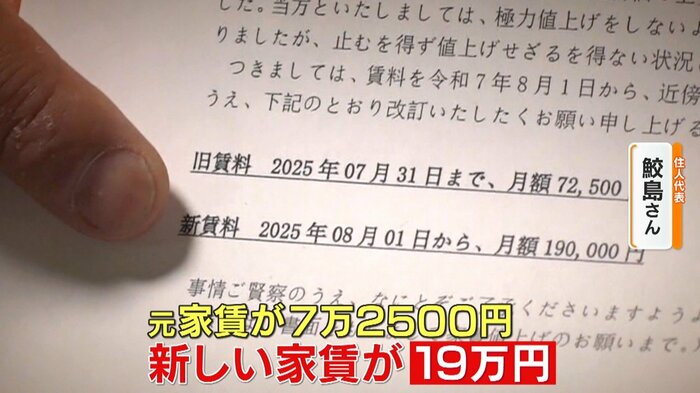 した。当方といたしましては、極力値上げをしないよ
りましたが、止むを得ず値上げせざるを得ない状況
つきましては、賃料を令和7年8月1日から、近傍
うえ、下記のとおり改訂いたしたくお願い申し上げる
旧賃料 2025年07月31日まで、月額72,500
新賃料 2025年08月01日から、月額190,000円
事情ご賢察のうえ、なにとぞご了承くださいますよう
書面
値上げのお願いまで。
住人代表
鮫島さん
元家賃が7万2500円
新しい家賃が19万円